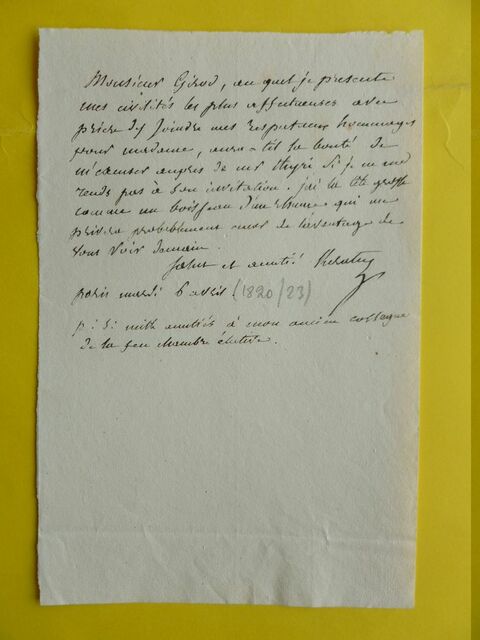 Monsieur Girod, au quel je présente
mes civilités les plus affectueuses avec
prière d'y joindre mes respectueux hommages
pour madame, aura-t-il la bonté de
m'excuser auprès de mr si je ne me
rends pas à son invitation. j'ai la tête grosse
comme un boisseau d'un rhume qui me
privera probablement encor de l'avantage de
vous voir demain.
Salut et amitié Kératry
paris mardi 6 avril (1820/23)
p: s: mille amitiés à mon ancien collègue
de la feu chambre élective.